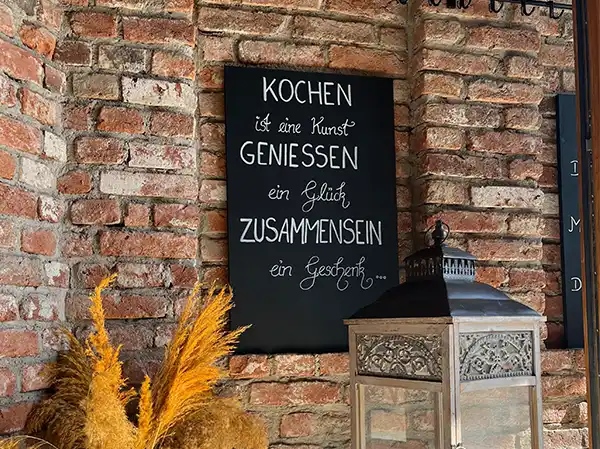 KOCHEN
ist eine Kunst
GENIESSEN
ein Glück
ZUSAMMENSEIN
ein Geschenk...
I
M
D